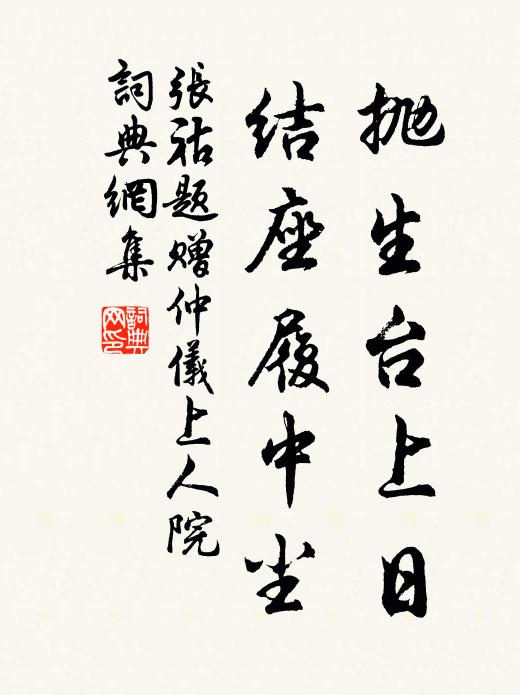 抛生台上日
结座履中尘
張祜题赠仲儀上人院
詞典網集
詞典网印